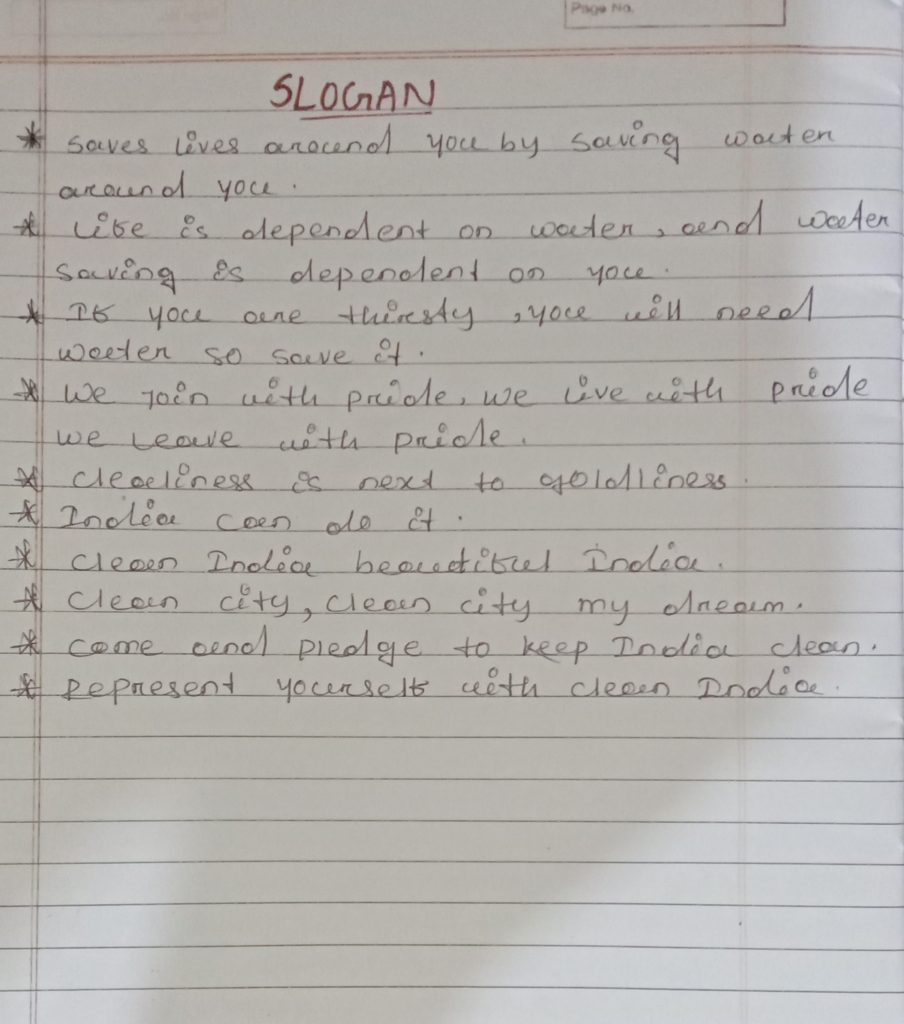 Page No.
SLOGAN
* saves lives around you by saving water
around you.
* Life is dependent on water, and water
saving is dependent on you.
* If you are thirsty, you will need
water so save it.
* We join with pride, we live with pride
we leave with pride.
* cleaeliness is next to goldliness.
* India can do it.
* clean India beautiful India.
* clean city, clean city my dream.
* come and pledge to keep India clean.
* Represent yourself with clean India.